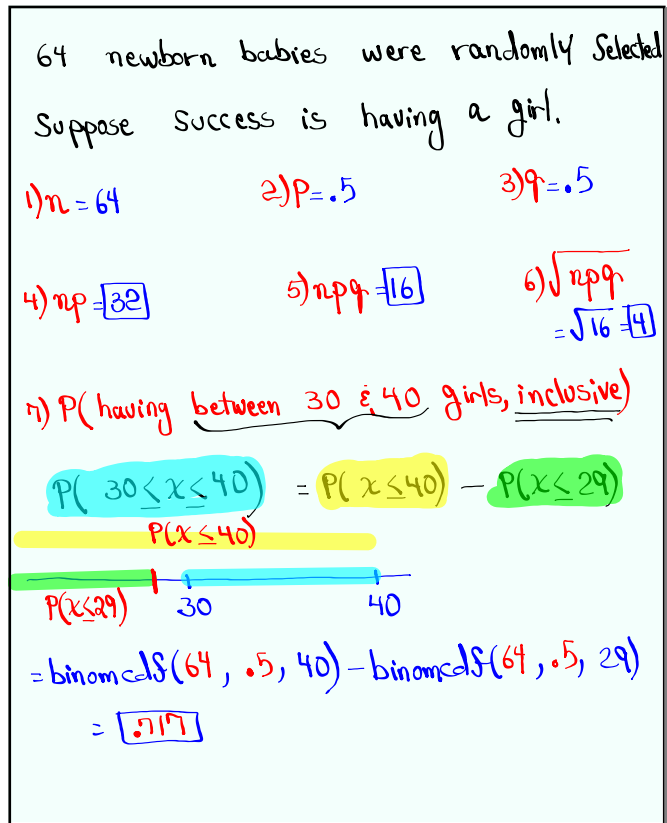 64 newborn babies were randomly Selected
Suppose Success is having a girl.
1) n = 64 2) p = .5 3) q = .5
4) np = 32 5) npq = 16 6) √npq
= √16 = 4
7) P( having between 30 & 40 girls, inclusive)
P( 30 ≤ x ≤ 40) = P( x ≤ 40) − P(x ≤ 29)
P(x ≤ 40)
P(x ≤ 29) 30 40
= binomcdf(64, .5, 40) − binomcdf(64, .5, 29)
= .717